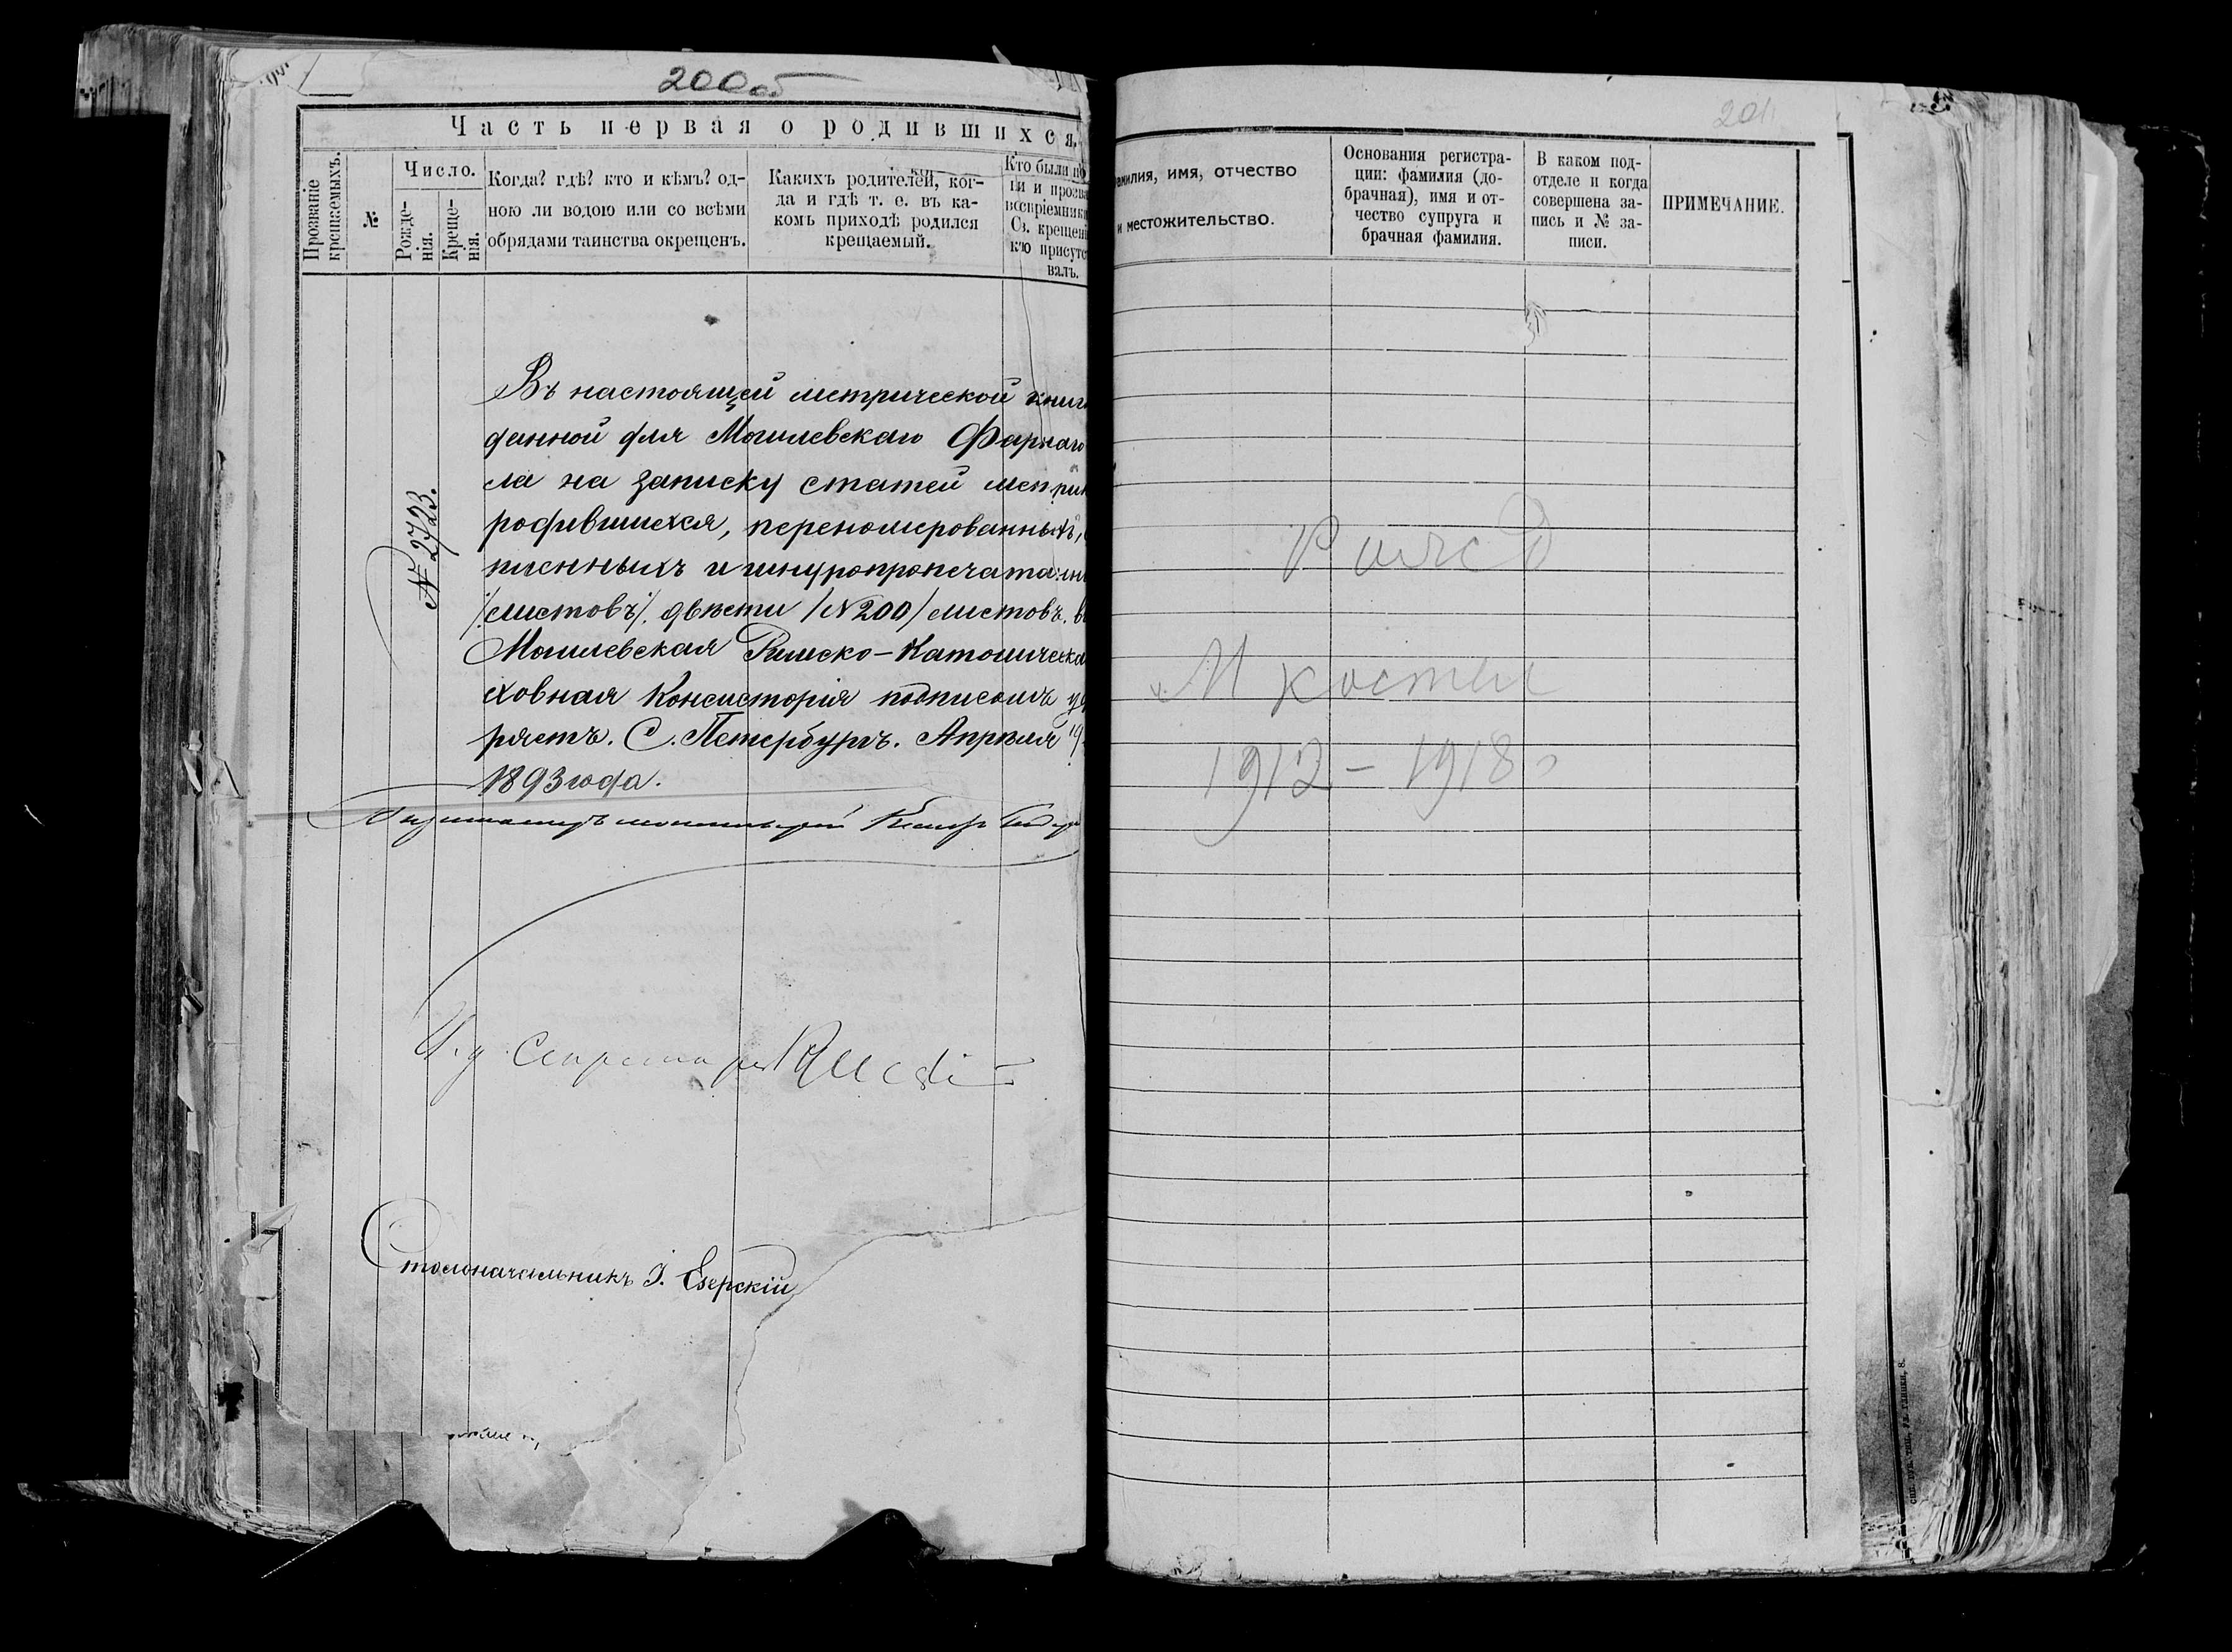 200об
Часть первая о родившихся.
Прозваніе крещаемыхъ.
№
Число.
Рожде-
нія.
Креще-
нія.
Когда? гдѣ? кто и кѣмъ? од-
ною ли водою или со всѣми
обрядами таинства окрещенъ.
Какихъ родителей, ког-
да и гдѣ т. е. въ ка-
комъ приходѣ родился
крещаемый.
Кто были
и прозва
воспріемники
Св. крещені
кто присутс
валъ.
№ 2723.
Въ настоящей метрической книг
данной для Могилевскаго Фарнаго
ла на записку статей метрик
родившихся, переномерованныхъ,
писнныхъ и шнуропропечатан
/:листовъ:/. двѣсти /№200/ листовъ. в
Могилевская Римско-Католическа
ховная Консисторія подписомъ у
ряетъ. С. Петербургъ. Апрѣля 19
1893 года.
И. д. Секретаря
Столоначальникъ І. Езерскій
201
фамилия, имя, отчество
и местожительство.
Основания регистра-
ции: фамилия (до-
брачная), имя и от-
чество супруга и
брачная фамилия.
В каком под-
отделе и когда
совершена за-
пись и № за-
писи.
ПРИМЕЧАНИЕ.
М костел
1912 – 1918